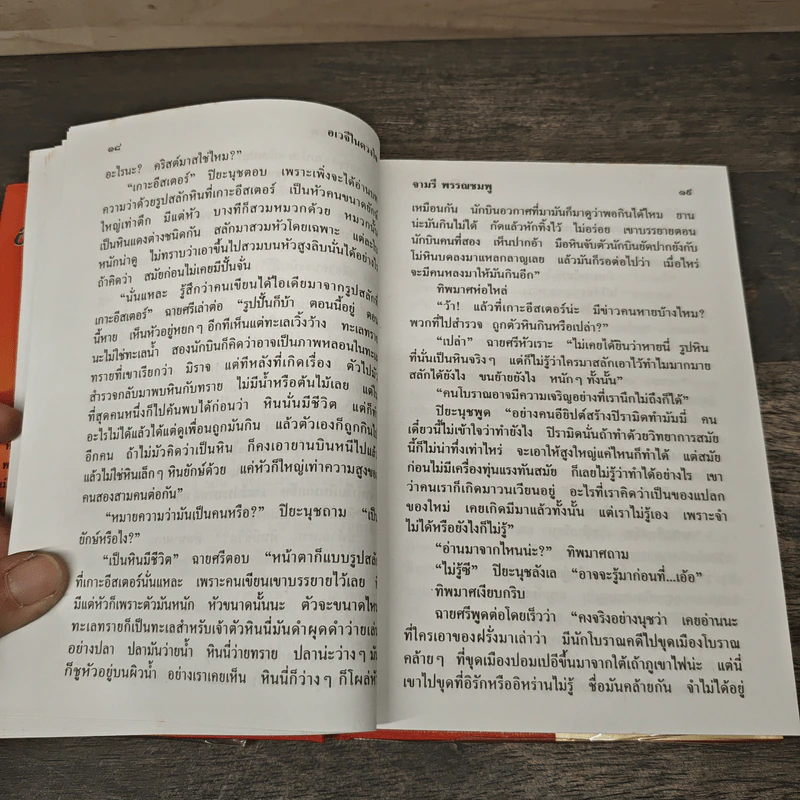 ๑๘
อเวจีในดวงใจ
อะไรนะ? คริสต์มาสใช่ไหม?”
“เกาะอีสเตอร์” ปิยะนุชตอบ เพราะเพิ่งจะได้อ่าน
ความว่าด้วยรูปสลักหินที่เกาะอีสเตอร์ เป็นหัวคนขนาดยักษ์
ใหญ่เท่าตึก มีแต่หัว บางทีก็สวมหมวกด้วย หมวกนั้น
เป็นหินแดงต่างชนิดกัน สลักมาสวมหัวโดยเฉพาะ แต่ละ
หนักน่าดู ไม่ทราบว่าเอาขึ้นไปสวมบนหัวสูงลิบนั่นได้อย่างไร
ถ้าคิดว่า สมัยก่อนไม่เคยมีปั้นจั่น
“นั่นแหละ รู้สึกว่าคนเขียนได้ไอเดียมาจากรูปสลัก
เกาะอีสเตอร์” ฉายศรีเล่าต่อ “รูปปั้นก็บ้า ตอนนี้อยู่ ตอน
นี้หาย เห็นหัวอยู่หยกๆ อีกทีเห็นแต่ทะเลเวิ้งว้าง ทะเลทราย
นะไม่ใช่ทะเลน้ำ สองนักบินก็คิดว่าอาจเป็นภาพหลอนในทะเล
ทรายที่เขาเรียกว่า มิราจ แต่ทีหลังที่เกิดเรื่อง ตัวไป
สำรวจกลับมาพบหินกับทราย ไม่มีน้ำหรือต้นไม้เลย แต่ใน
ที่สุดคนหนึ่งก็ไปค้นพบได้ก่อนว่า หินนั่นมีชีวิต แต่ก็
อะไรไม่ได้แล้วได้แต่ดูเพื่อนถูกมันกิน แล้วตัวเองก็ถูกกิน
อีกคน ถ้าไม่มัวคิดว่าเป็นหิน ก็คงเอายานบินหนีไป
แล้วไม่ใช่หินเล็กๆ หินยักษ์ด้วย แค่หัวก็ใหญ่เท่าความสูงของ
คนสองสามคนต่อกัน”
“หมายความว่ามันเป็นคนหรือ?” ปิยะนุชถาม “เป็น
ยักษ์หรือไง?”
“เป็นหินมีชีวิต” ฉายศรีตอบ “หน้าตาก็แบบรูปสลัก
ที่เกาะอีสเตอร์นั่นแหละ เพราะคนเขียนเขาบรรยายไว้เลย
มีแต่หัวก็เพราะตัวมันหนัก หัวขนาดนั้นนะ ตัวจะขนาดไหน
ทะเลทรายก็เป็นทะเลสำหรับเจ้าตัวหินนี่มันดำผุดดำว่ายเล่น
อย่างปลา ปลามันว่ายน้ำ หินนี่ว่ายทราย ปลาน่ะว่างๆ มัน
ก็ชูหัวอยู่บนผิวน้ำ อย่างเราเคยเห็น หินนี่ก็ว่างๆ ก็โผล่หัว
จามรี พรรณชมพู
๑๙
เหมือนกัน นักบินอวกาศที่มามันก็มาดูว่าพอกินได้ไหม ยาน
น่ะมันกินไม่ได้ กัดแล้วหักทิ้งไว้ ไม่อร่อย เขาบรรยายตอน
นักบินคนที่สอง เห็นปากอ้า มือหินจับตัวนักบินยัดปากยังกับ
โม่หินบดลงมาแแหลกลาญเลย แล้วมันก็รอต่อไปว่า เมื่อไหร่
จะมีคนหลงมาให้มันกินอีก”
ทิพมาศห่อไหล่
“ว้า! แล้วที่เกาะอีสเตอร์น่ะ มีข่าวคนหายบ้างไหม?
พวกที่ไปสำรวจ ถูกตัวหินกินหรือเปล่า?”
“เปล่า” ฉายศรีหัวเราะ “ไม่เคยได้ยินว่าหายนี่ รูปหิน
ที่นั่นเป็นหินจริงๆ แต่ก็ไม่รู้ว่าใครมาสลักเอาไว้ทำไมมากมาย
สลักได้ยังไง ขนย้ายยังไง หนักๆ ทั้งนั้น”
“คนโบราณอาจมีความเจริญอย่างที่เรานึกไม่ถึงก็ได้”
ปิยะนุชพูด “อย่างคนอียิปต์สร้างปิรามิดทำมัมมี่ คน
เดี๋ยวนี้ไม่เข้าใจว่าทำยังไง ปิรามิดนั่นถ้าทำด้วยวิทยาการสมัย
นี้ก็ไม่น่าทึ่งเท่าไหร่ จะเอาให้สูงใหญ่แค่ไหนก็ทำได้ แต่สมัย
ก่อนไม่มีเครื่องทุ่นแรงทันสมัย ก็เลยไม่รู้ว่าทำได้อย่างไร เขา
ว่าคนเราก็เกิดมาวนเวียนอยู่ อะไรที่เราคิดว่าเป็นของแปลก
ของใหม่ เคยเกิดมีมาแล้วทั้งนั้น แต่เราไม่รู้เอง เพราะจำ
ไม่ได้หรือยังไงก็ไม่รู้”
“อ่านมาจากไหนน่ะ?” ทิพมาศถาม
“ไม่รู้ซี” ปิยะนุชลังเล “อาจจะรู้มาก่อนที่...เอ้อ”
ทิพมาศเงียบกริบ
ฉายศรีพูดต่อโดยเร็วว่า “คงจริงอย่างนุชว่า เคยอ่านนะ
ที่ใครเอาของฝรั่งมาเล่าว่า มีนักโบราณคดีไปขุดเมืองโบราณ
คล้ายๆ ที่ขุดเมืองปอมเปอีขึ้นมาจากใต้เถ้าภูเขาไฟน่ะ แต่นี่
เขาไปขุดที่อิรักหรืออิหร่านไม่รู้ ชื่อมันคล้ายกัน จำไม่ได้อยู่